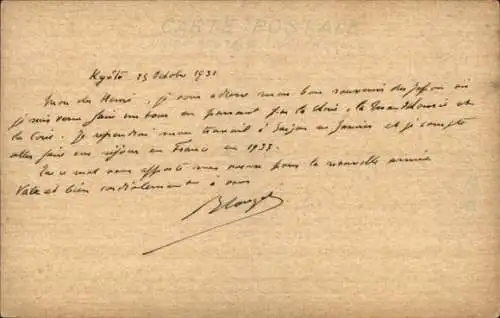 CARTE POSTALE
Kyôto 25 Octobre 1931
Mon cher Henri, je vous adresse mon bon souvenir du Japon où
je suis venu faire un tour en passant par la Chine, la Mandchourie et
la Corée. Je reprendrai mon travail à Saigon en Janvier et je compte
aller faire un séjour en France en 1933.
Que ce mot vous apporte mes vœux pour la nouvelle année
et bien cordialement à vous